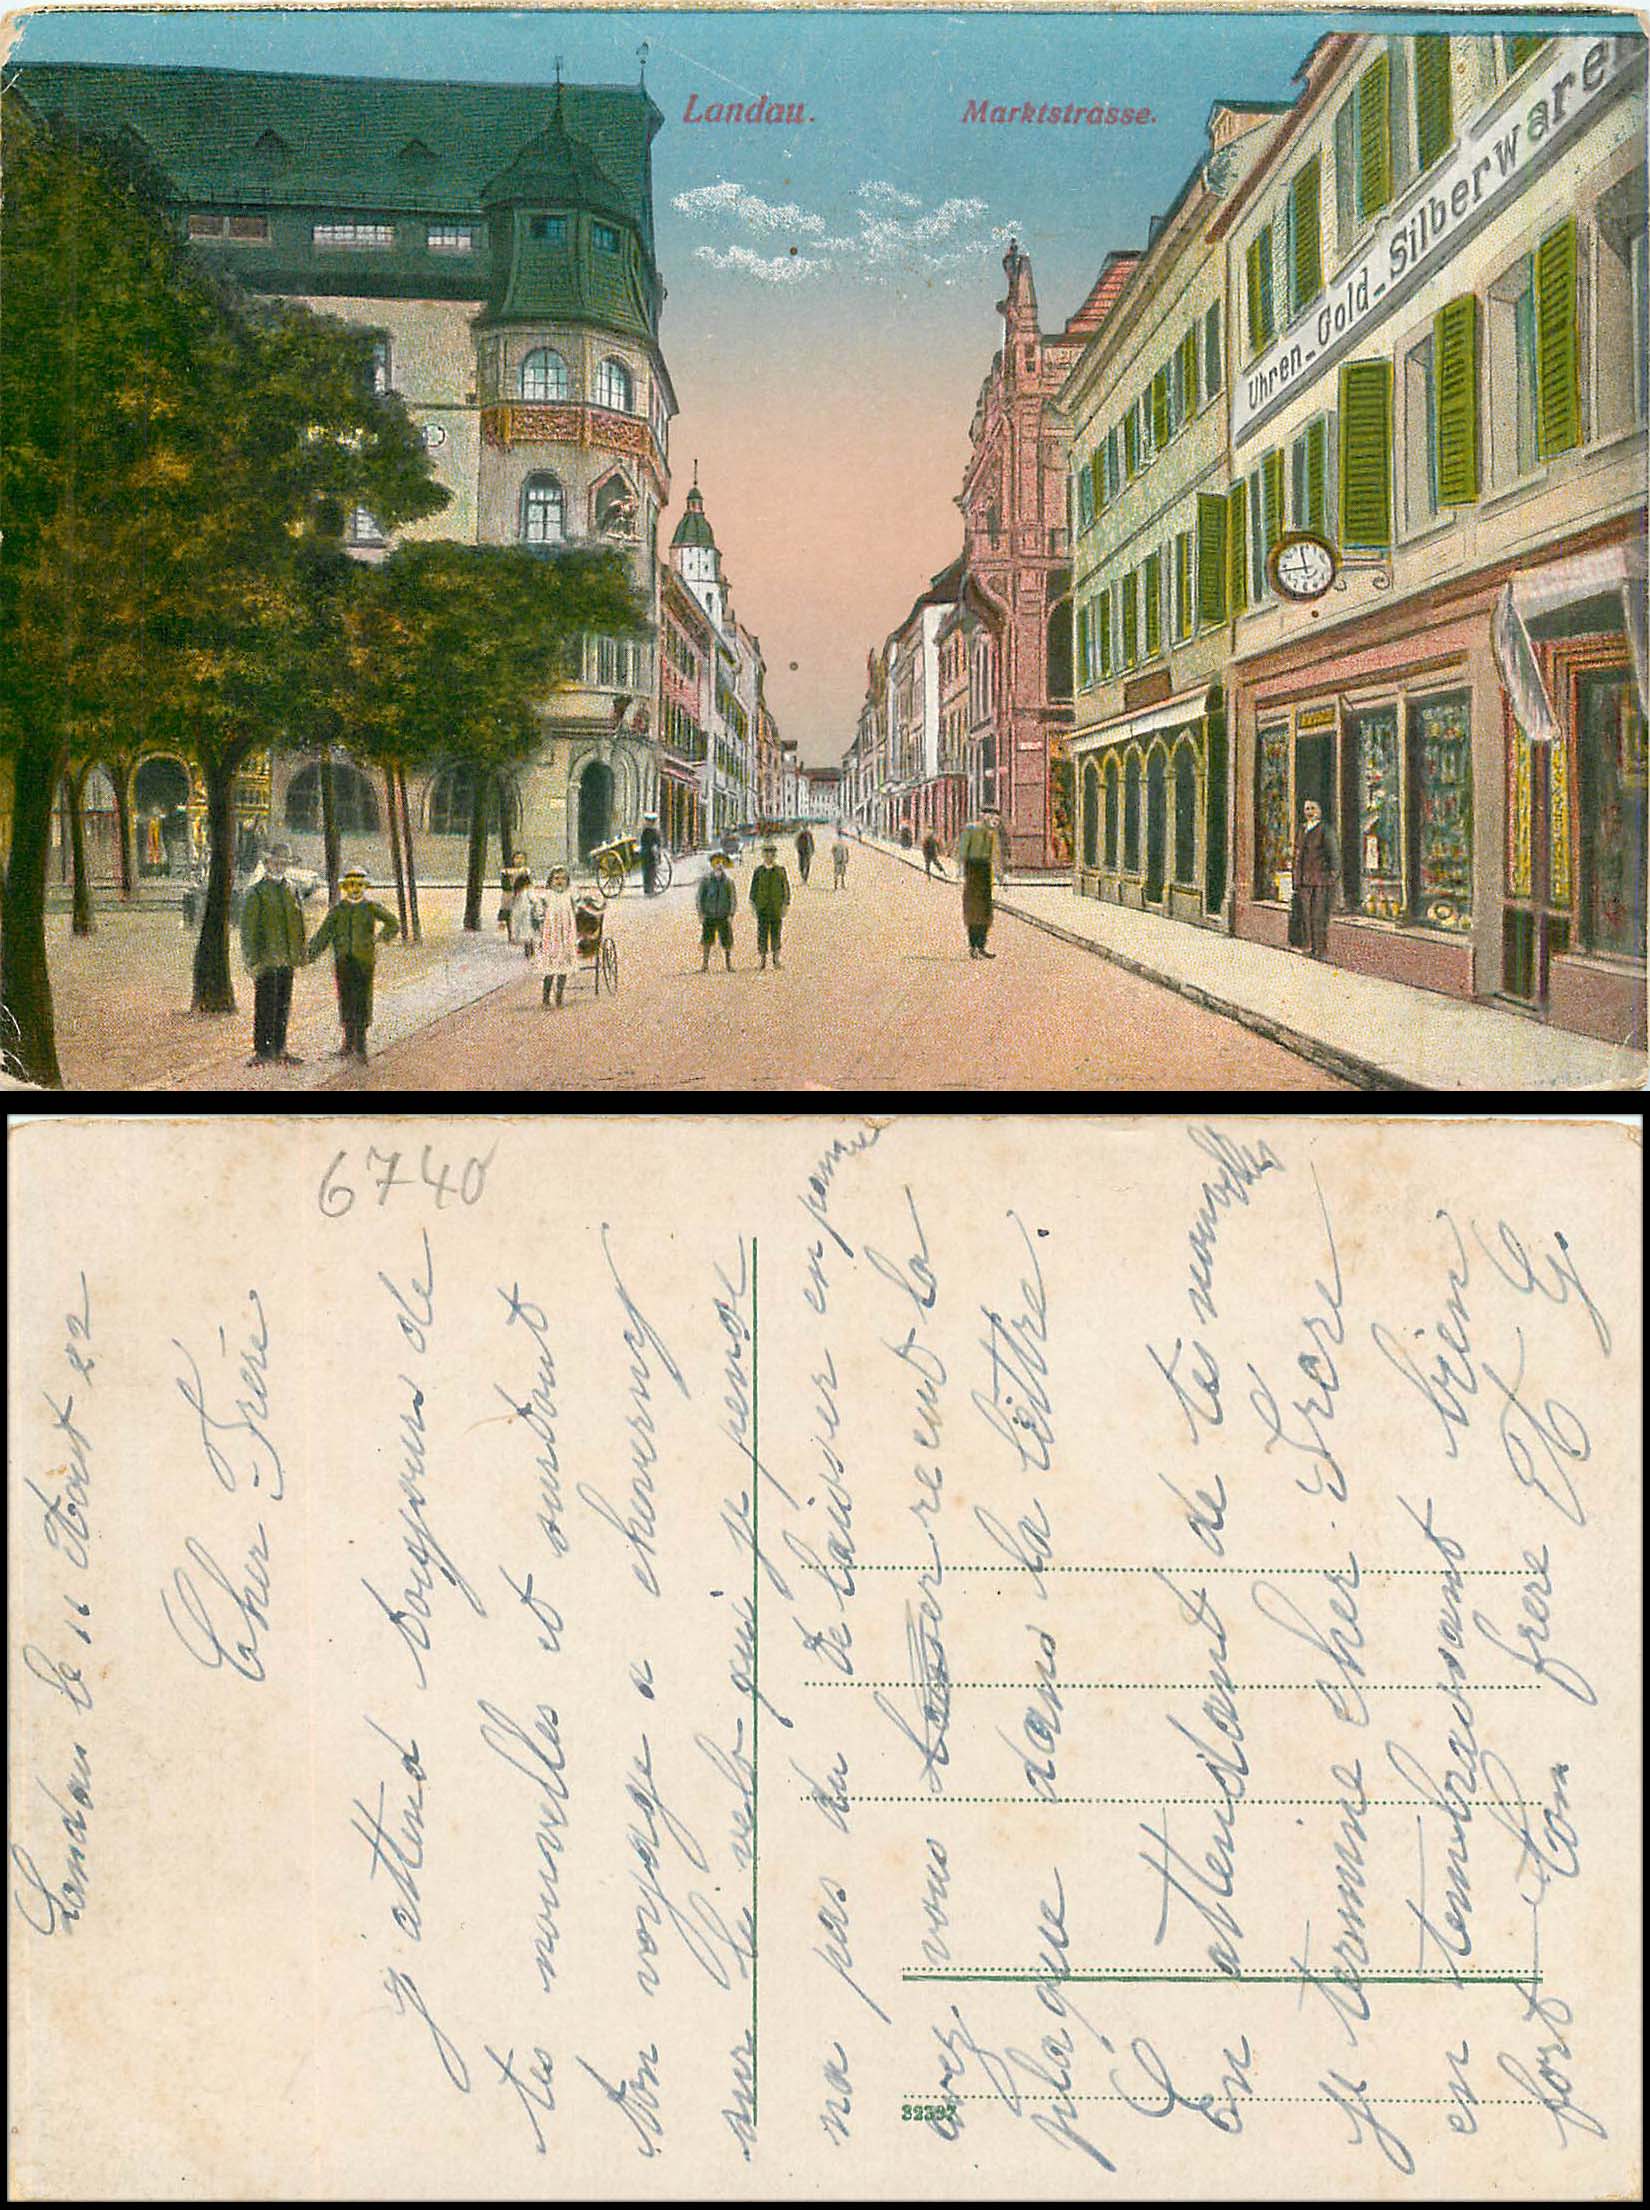 Landau.
Marktstrasse.
Uhren-Gold-Silberwaren
6740
Landau le 11 Aout 22
Cher Frère
j attend toujours de
tes nouvelles et surtout
ton voyage a cheverny
sur le velo qui je pense
na pas du te laisser en panne
avez vous reçut la
plaque dans la lettre.
En attendant de tes nouvelles
je termine cher Frere
en tembrassant bien
fort Ton frere
32397